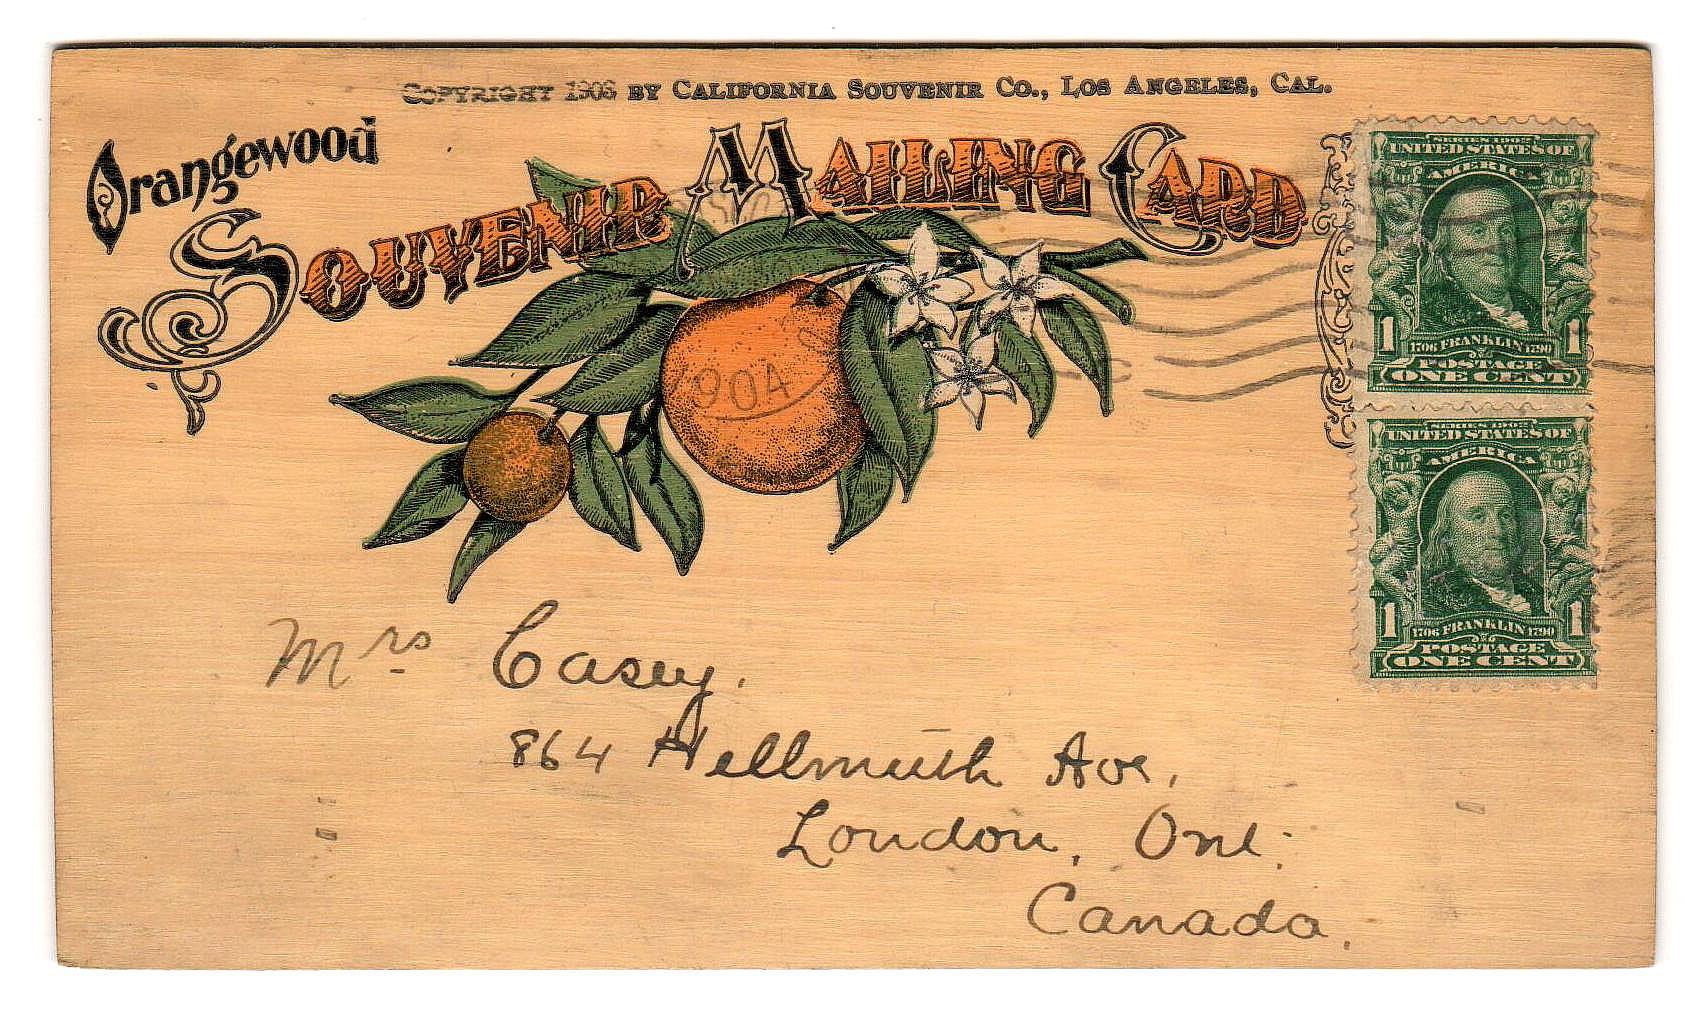 COPYRIGHT 1903 BY CALIFORNIA SOUVENIR CO., LOS ANGELES, CAL.
Orangewood
SOUVENIR MAILING CARD
SERIES 1902
UNITED STATES OF
AMERICA
1 1
1706 FRANKLIN 1790
POSTAGE
ONE CENT
SERIES 1902
UNITED STATES OF
AMERICA
1 1
1706 FRANKLIN 1790
POSTAGE
ONE CENT
Mrs Casey.
864 Hellmuth Ave,
London, Ont.
Canada.